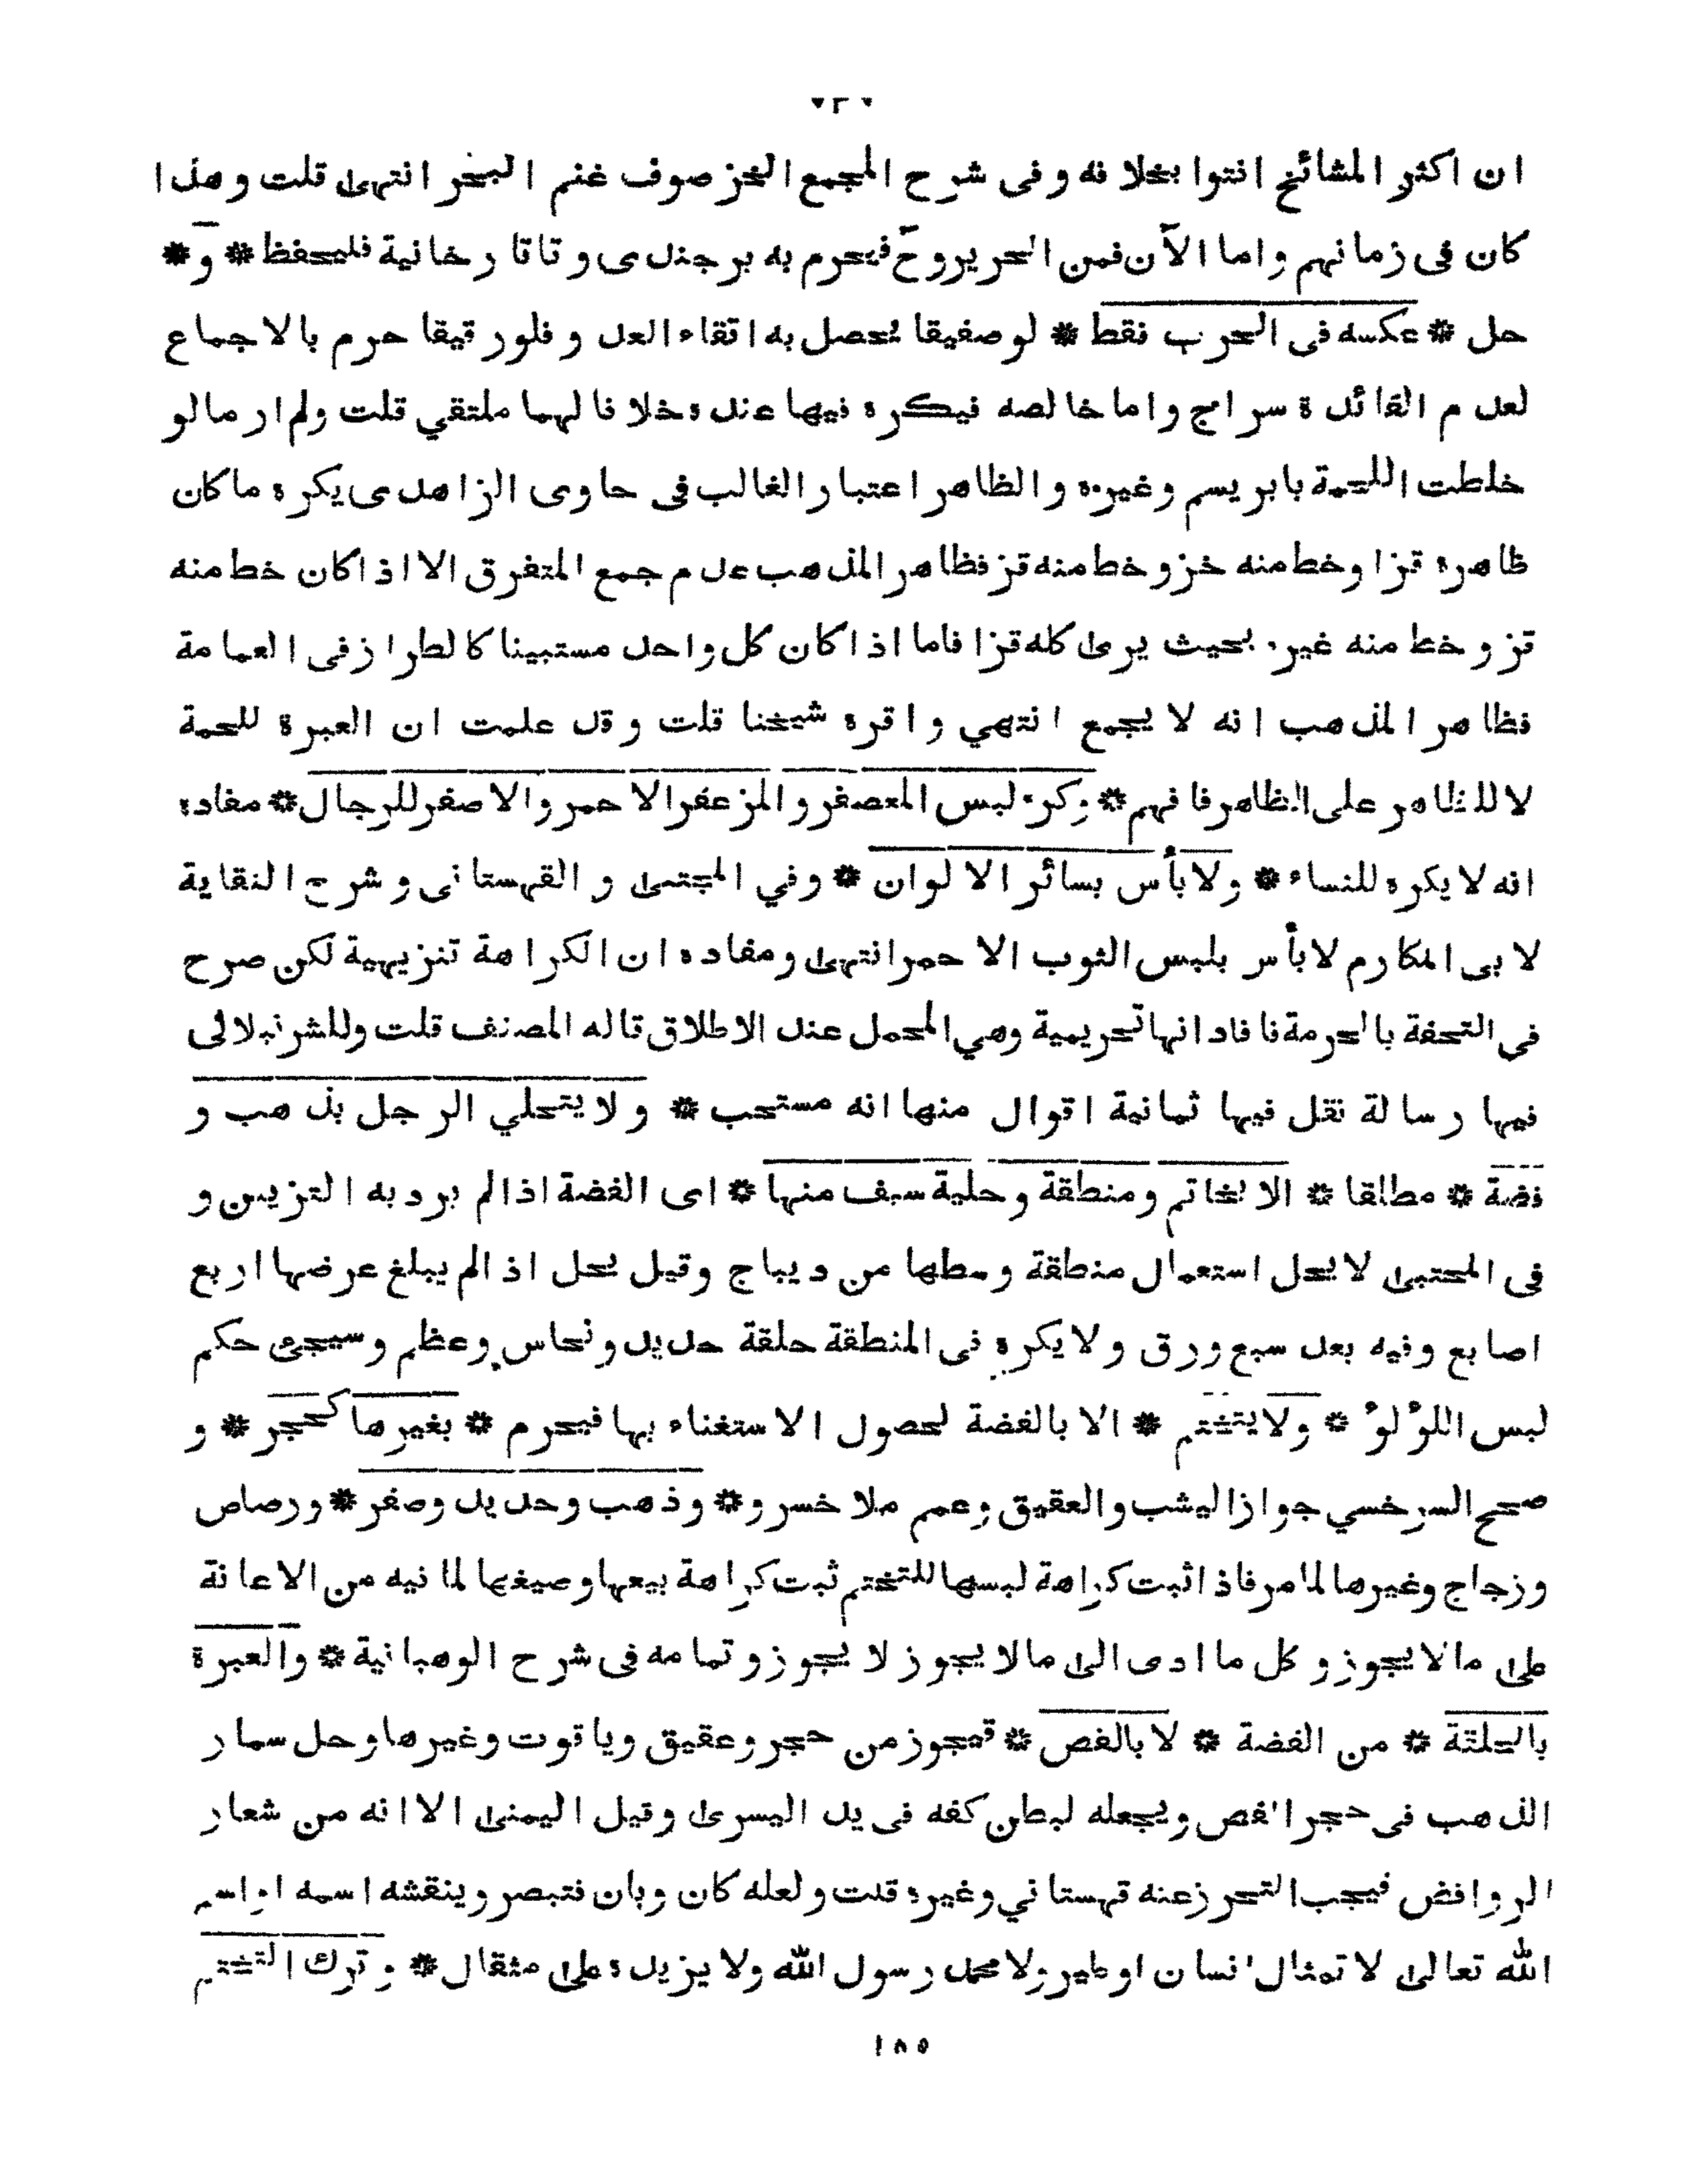 ٧٢٠
ان اكثر المشائخ افتوا بخلافه وفى شرح المجمع الخز صوف غنم البحر انتهى قلت وهذا
كان فى زمانهم واما الآن فمن الحرير وحّ فيحرم به برجندى وتاتارخانية فليحفظ * و *
حل * عكسه فى الحرب فقط * لو صفيقا يحصل به اتقاء العدو فلو رقيقا حرم بالاجماع
لعدم الفائدة سراج واما خالصه فيكره فيها عنده خلافا لهما ملتقي قلت ولم ار ما لو
خلطت اللحمة بابريسم وغيره والظاهر اعتبار الغالب فى حاوى الزاهدى يكره ما كان
ظاهره قزا وخط منه خز وخط منه قز فظاهر المذهب عدم جمع المتفرق الا اذا كان خط منه
قز وخط منه غيره بحيث يرى كله قزا فاما اذا كان كل واحد مستبينا كالطراز فى العمامة
فظاهر المذهب انه لا يجمع انتهي واقره شيخنا قلت وقد علمت ان العبرة للحمة
لا للظاهر على الظاهر فافهم * وكره لبس المعصفر والمزعفر الاحمر والاصفر للرجال * مفاده
انه لا يكره للنساء * ولا بأس بسائر الالوان * وفي المجتبى والقهستانى وشرح النقاية
لابى المكارم لا بأس بلبس الثوب الاحمر انتهى ومفاده ان الكراهة تنزيهية لكن صرح
فى التحفة بالحرمة فافاد انها تحريمية وهي المحمل عند الاطلاق قاله المصنف قلت وللشرنبلالى
فيها رسالة نقل فيها ثمانية اقوال منها انه مستحب * ولا يتحلي الرجل بذهب و
فضة * مطلقا * الا بخاتم ومنطقة وحلية سيف منها * اى الفضة اذا لم يرد به التزيين و
فى المجتبى لا يحل استعمال منطقة وسطها من ديباج وقيل يحل اذا لم يبلغ عرضها اربع
اصابع وفيه بعد سبع ورق ولا يكره فى المنطقة حلقة حديد ونحاس وعظم وسيجئ حكم
لبس اللؤلؤ * ولا يتختم * الا بالفضة لحصول الاستغناء بها فيحرم * بغيرها كحجر * و
صحح السرخسي جواز اليشب والعقيق وعمم ملا خسرو * وذهب وحديد وصفر * ورصاص
وزجاج وغيرها لما مر فاذا ثبت كراهة لبسها للتختم ثبت كراهة بيعها وصيغها لما فيه من الاعانة
على ما لا يجوز وكل ما ادى الى ما لا يجوز لا يجوز وتمامه فى شرح الوهبانية * والعبرة
بالحلقة * من الفضة * لا بالفص * فيجوز من حجر وعقيق وياقوت وغيرها وحل سمار
الذهب فى حجر الفص ويجعله لبطن كفه فى يد اليسرى وقيل اليمنى الا انه من شعار
الروافض فيجب التحرز عنه قهستاني وغيره قلت ولعله كان وبان فتبصر وينقشه اسمه او اسم
الله تعالى لا تمثال انسان او طير ولا محمد رسول الله ولا يزيده على مثقال * وترك التختم
١٨٥